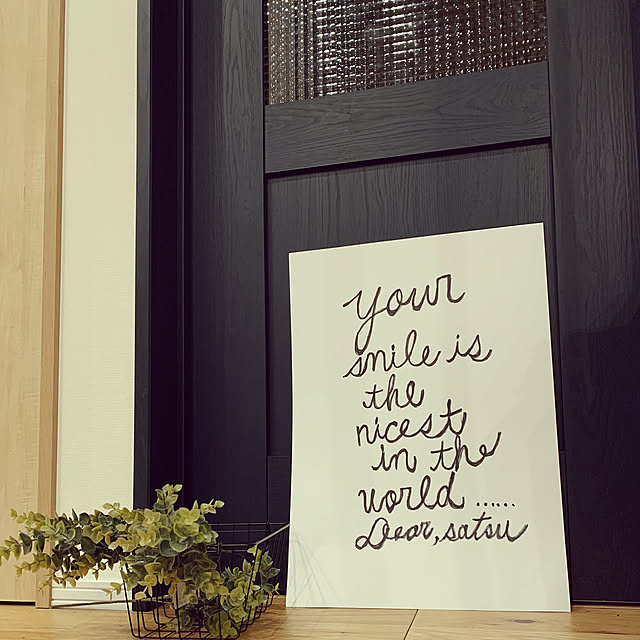 your
smile is
the
nicest
in the
world ......
Dear, satsu